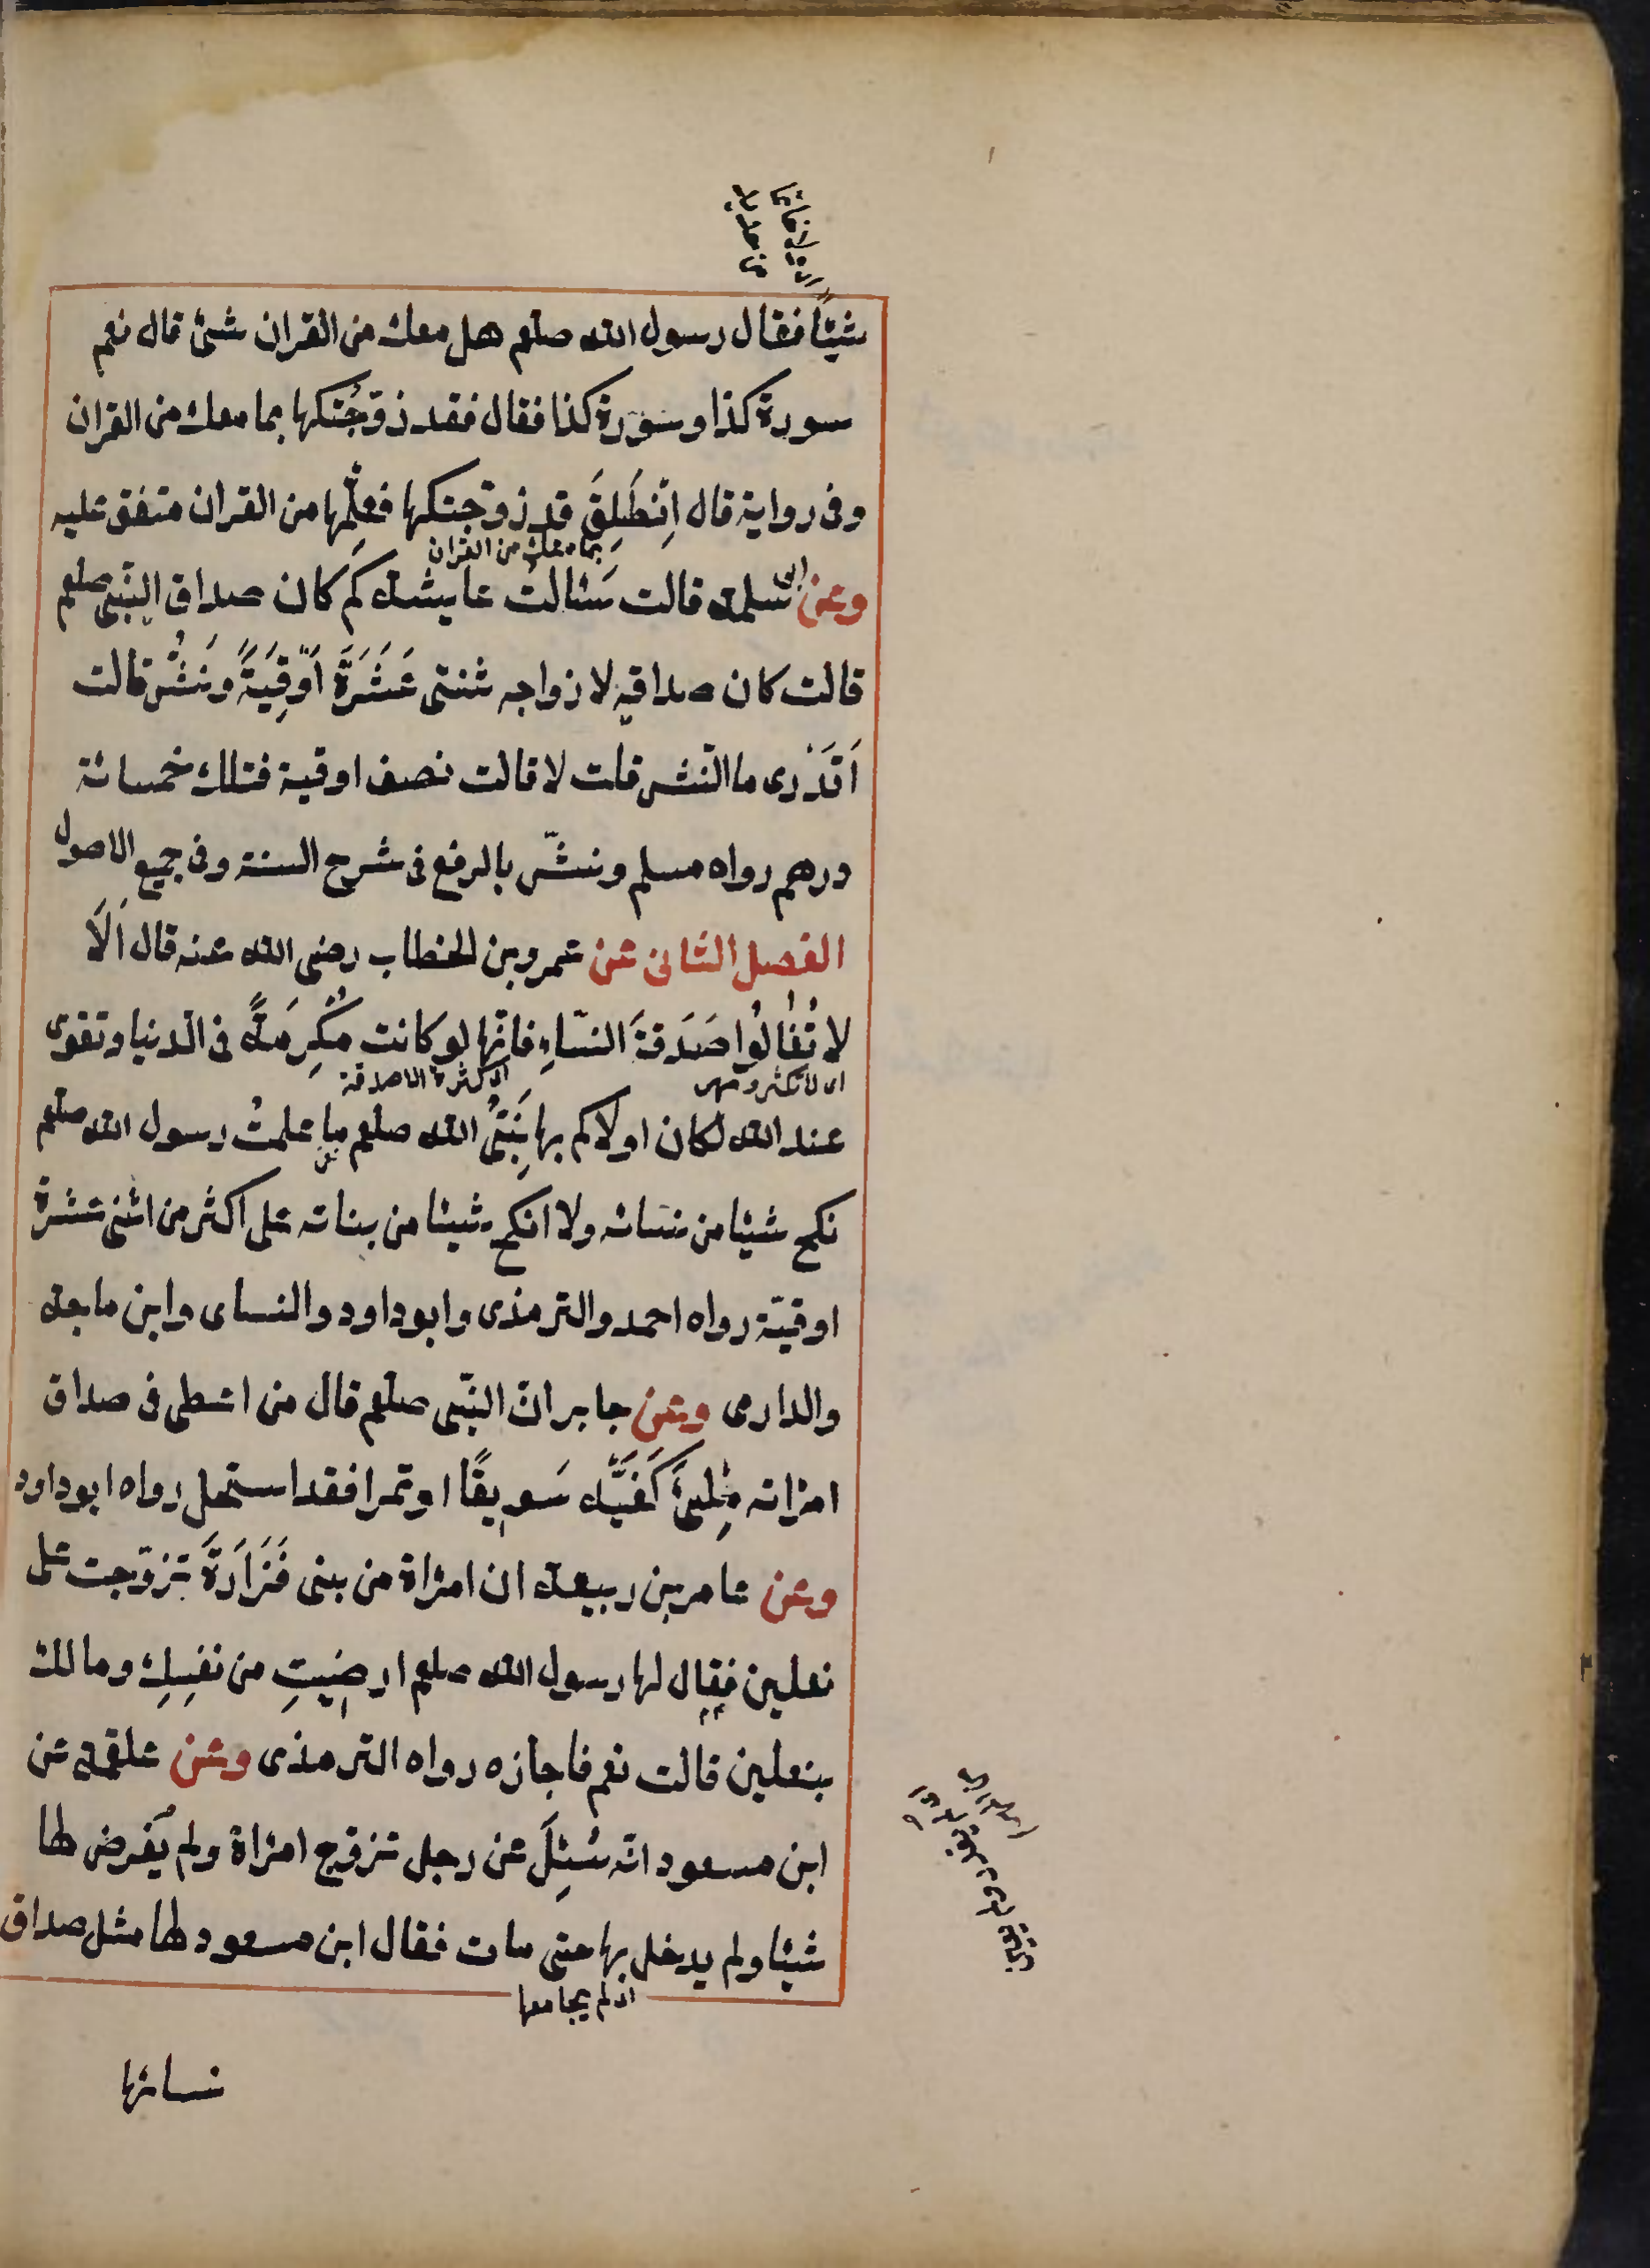 شيئًا فقال رسول الله صلعم هل معك من القران شئ قال نعم
سورة كذا وسورة كذا فقال فقد زوّجْتُكها بما معك من القران
وفى رواية قال اِنْطَلِقْ قد زوّجتكها فعلّمها من القران متفق عليه
بما معك من القران
وعن ابى سلمة قالت سَئالتُ عايشة كم كان صداق النّبى صلعم
قالت كان صداقه لازواجه ثنتى عَشَرَةَ اُوقِيَةً ونَشٌّ قالت
اَتَدْرى ما النّش قلت لا قالت نصف اوقية فتلك خمسائة
درهم رواه مسلم ونشّ بالرفع فى شرح السنة وفى جميع الاصول
الفصل الثانى عن عمرو بن الخطاب رضى الله عنه قال اَلَا
لا تُغَالُوا صَدَقةَ النّساءِ فانّها لو كانت مُكْرِمَةً فى الدنيا وتقوى
اى لا تكثروا مهر
اى كثرة الاصدقة
عند الله لكان اولاكم بها نَبِىُّ الله صلعم ما علمتُ رسول الله صلعم
نكح شيئا من نسائه ولا انكح شيئا من بناته على اكثر من اثنى عشرة
اوقيّة رواه احمد والترمذى وابوداود والنساى وابن ماجة
والدارمى وعن جابر انّ النّبى صلعم قال من اعطى فى صداق
امراته مِلْئَ كَفَّيْه سَوِيقًا او تمرا فقد استحل رواه ابوداود
وعن عامر بن ربيعة ان امراة من بنى فَزَارَةَ تزوّجت على
نعلين فقال لها رسول الله صلعم ارضِيتِ من نفسِكِ ومالك
بنعلين قالت نعم فاجازه رواه الترمذى وعن علقمة عن
ابن مسعود انّه سُئِلَ عن رجل تزوّج امراة ولم يَفرض لها
شيئا ولم يدخل بها حتى مات فقال ابن مسعود لها مثل صداق
اى لم يجامعها
نسائها